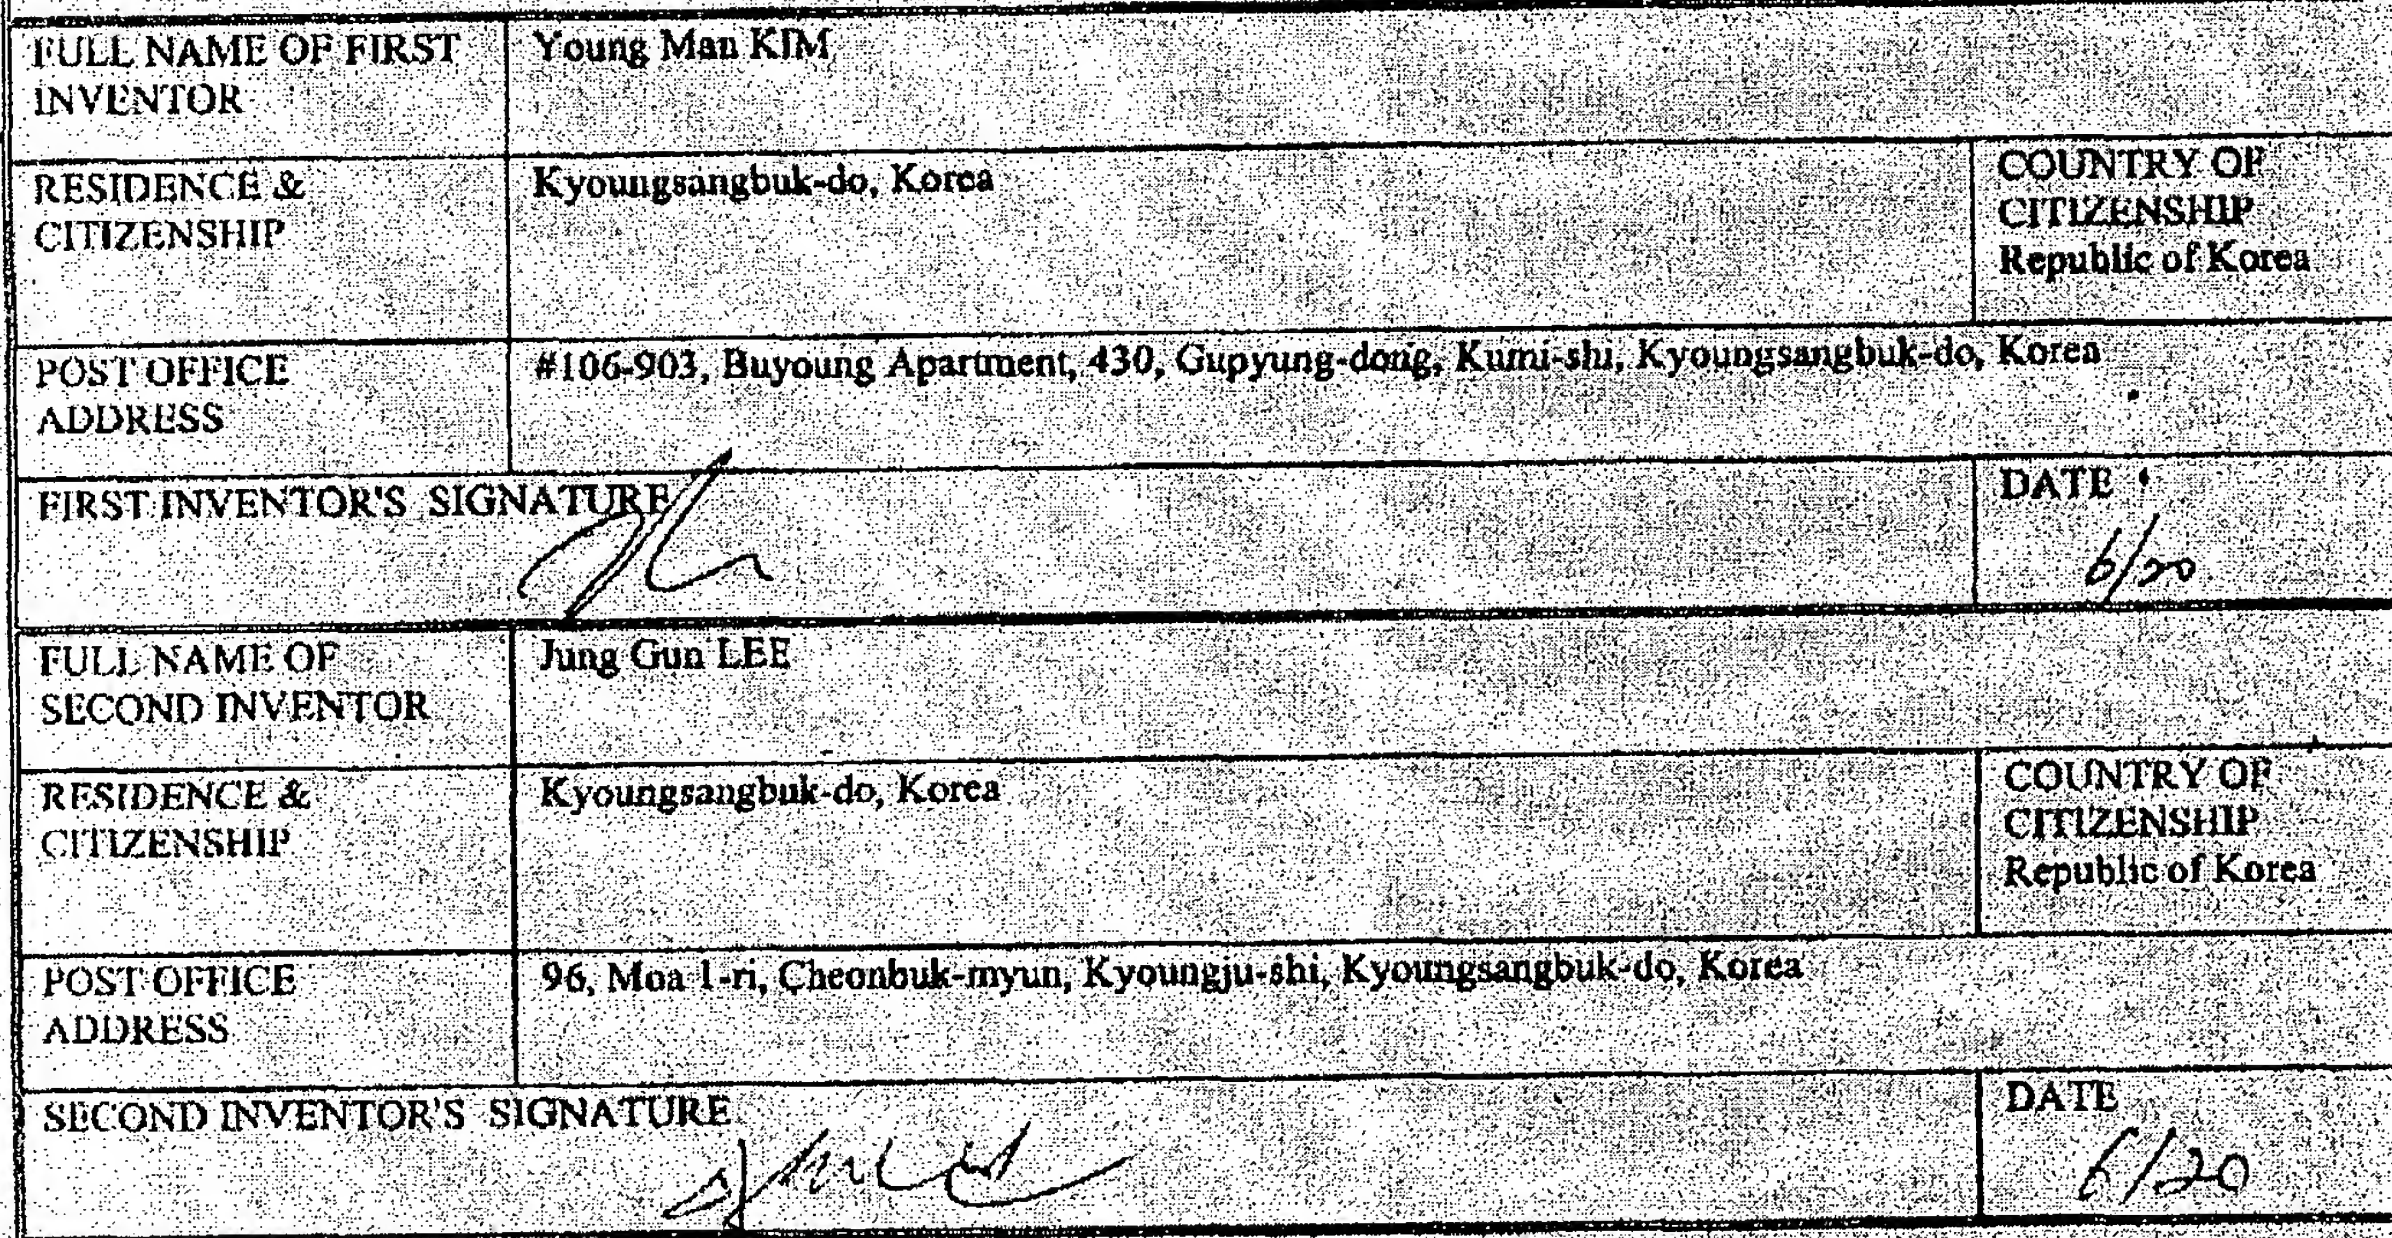 FULL NAME OF FIRST
INVENTOR
Young Man KIM
RESIDENCE &
CITIZENSHIP
Kyoungsangbuk-do, Korea
COUNTRY OF
CITIZENSHIP
Republic of Korea
POST OFFICE
ADDRESS
#106-903, Buyoung Apartment, 430, Gupyung-dong, Kumi-shi, Kyoungsangbuk-do, Korea
FIRST INVENTOR'S SIGNATURE
DATE
6/20
FULL NAME OF
SECOND INVENTOR
Jung Gun LEE
RESIDENCE &
CITIZENSHIP
Kyoungsangbuk-do, Korea
COUNTRY OF
CITIZENSHIP
Republic of Korea
POST OFFICE
ADDRESS
96, Moa 1-ri, Cheonbuk-myun, Kyoungju-shi, Kyoungsangbuk-do, Korea
SECOND INVENTOR'S SIGNATURE
DATE
6/20